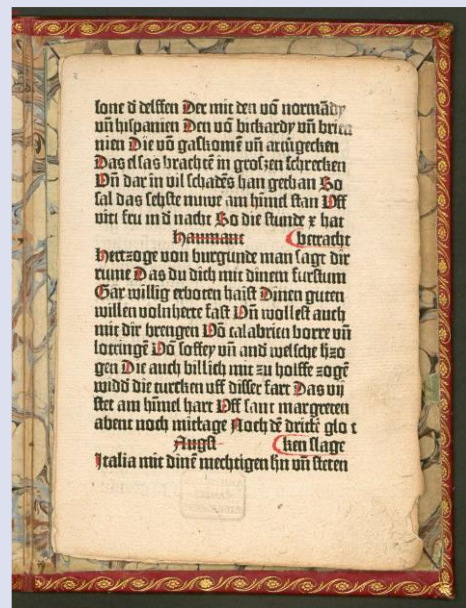 sone đ delffen Der mit den vō normādy
vñ hispanien Den vō bickardy vñ brien
nien Die vō gaskome vñ artugecken
Das elsas bracht ē in groszen schrecken
Vñ dar in vil schadēs han gethan So
sal das sehste nuwe am hīmel stan Vff
viti feu in đ nacht So die stunde x hat
Haumant (betracht
Hertzoge von burgunde man sagt dir
rume Das du dich mit dinem furstum
Gar willig erboten haist Dinen guten
willen volnherte fast Vñ wollest auch
mit dir brengen Vō calabrien borre vñ
lotringē Vō soffey vñ and welsche hzo
gen Die auch billich mit zu holffe zogē
widđ die turcken vff disser fart Das vij
stet am hīmel hart Vff sant margreten
abent noch mittage Noch dē drickē glo c
Augst (ken slage
Italia mit dinē mechtigen hn vñ steten